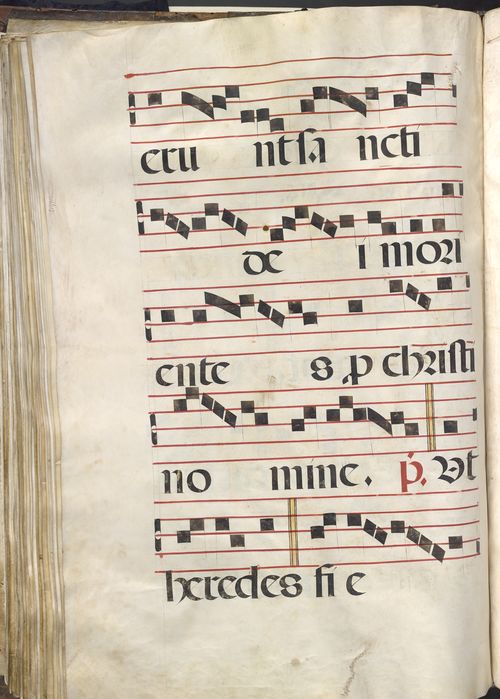 eru ntsa ncti
de i mori
ente s p christi
no mine. p. Ut
heredes fi e